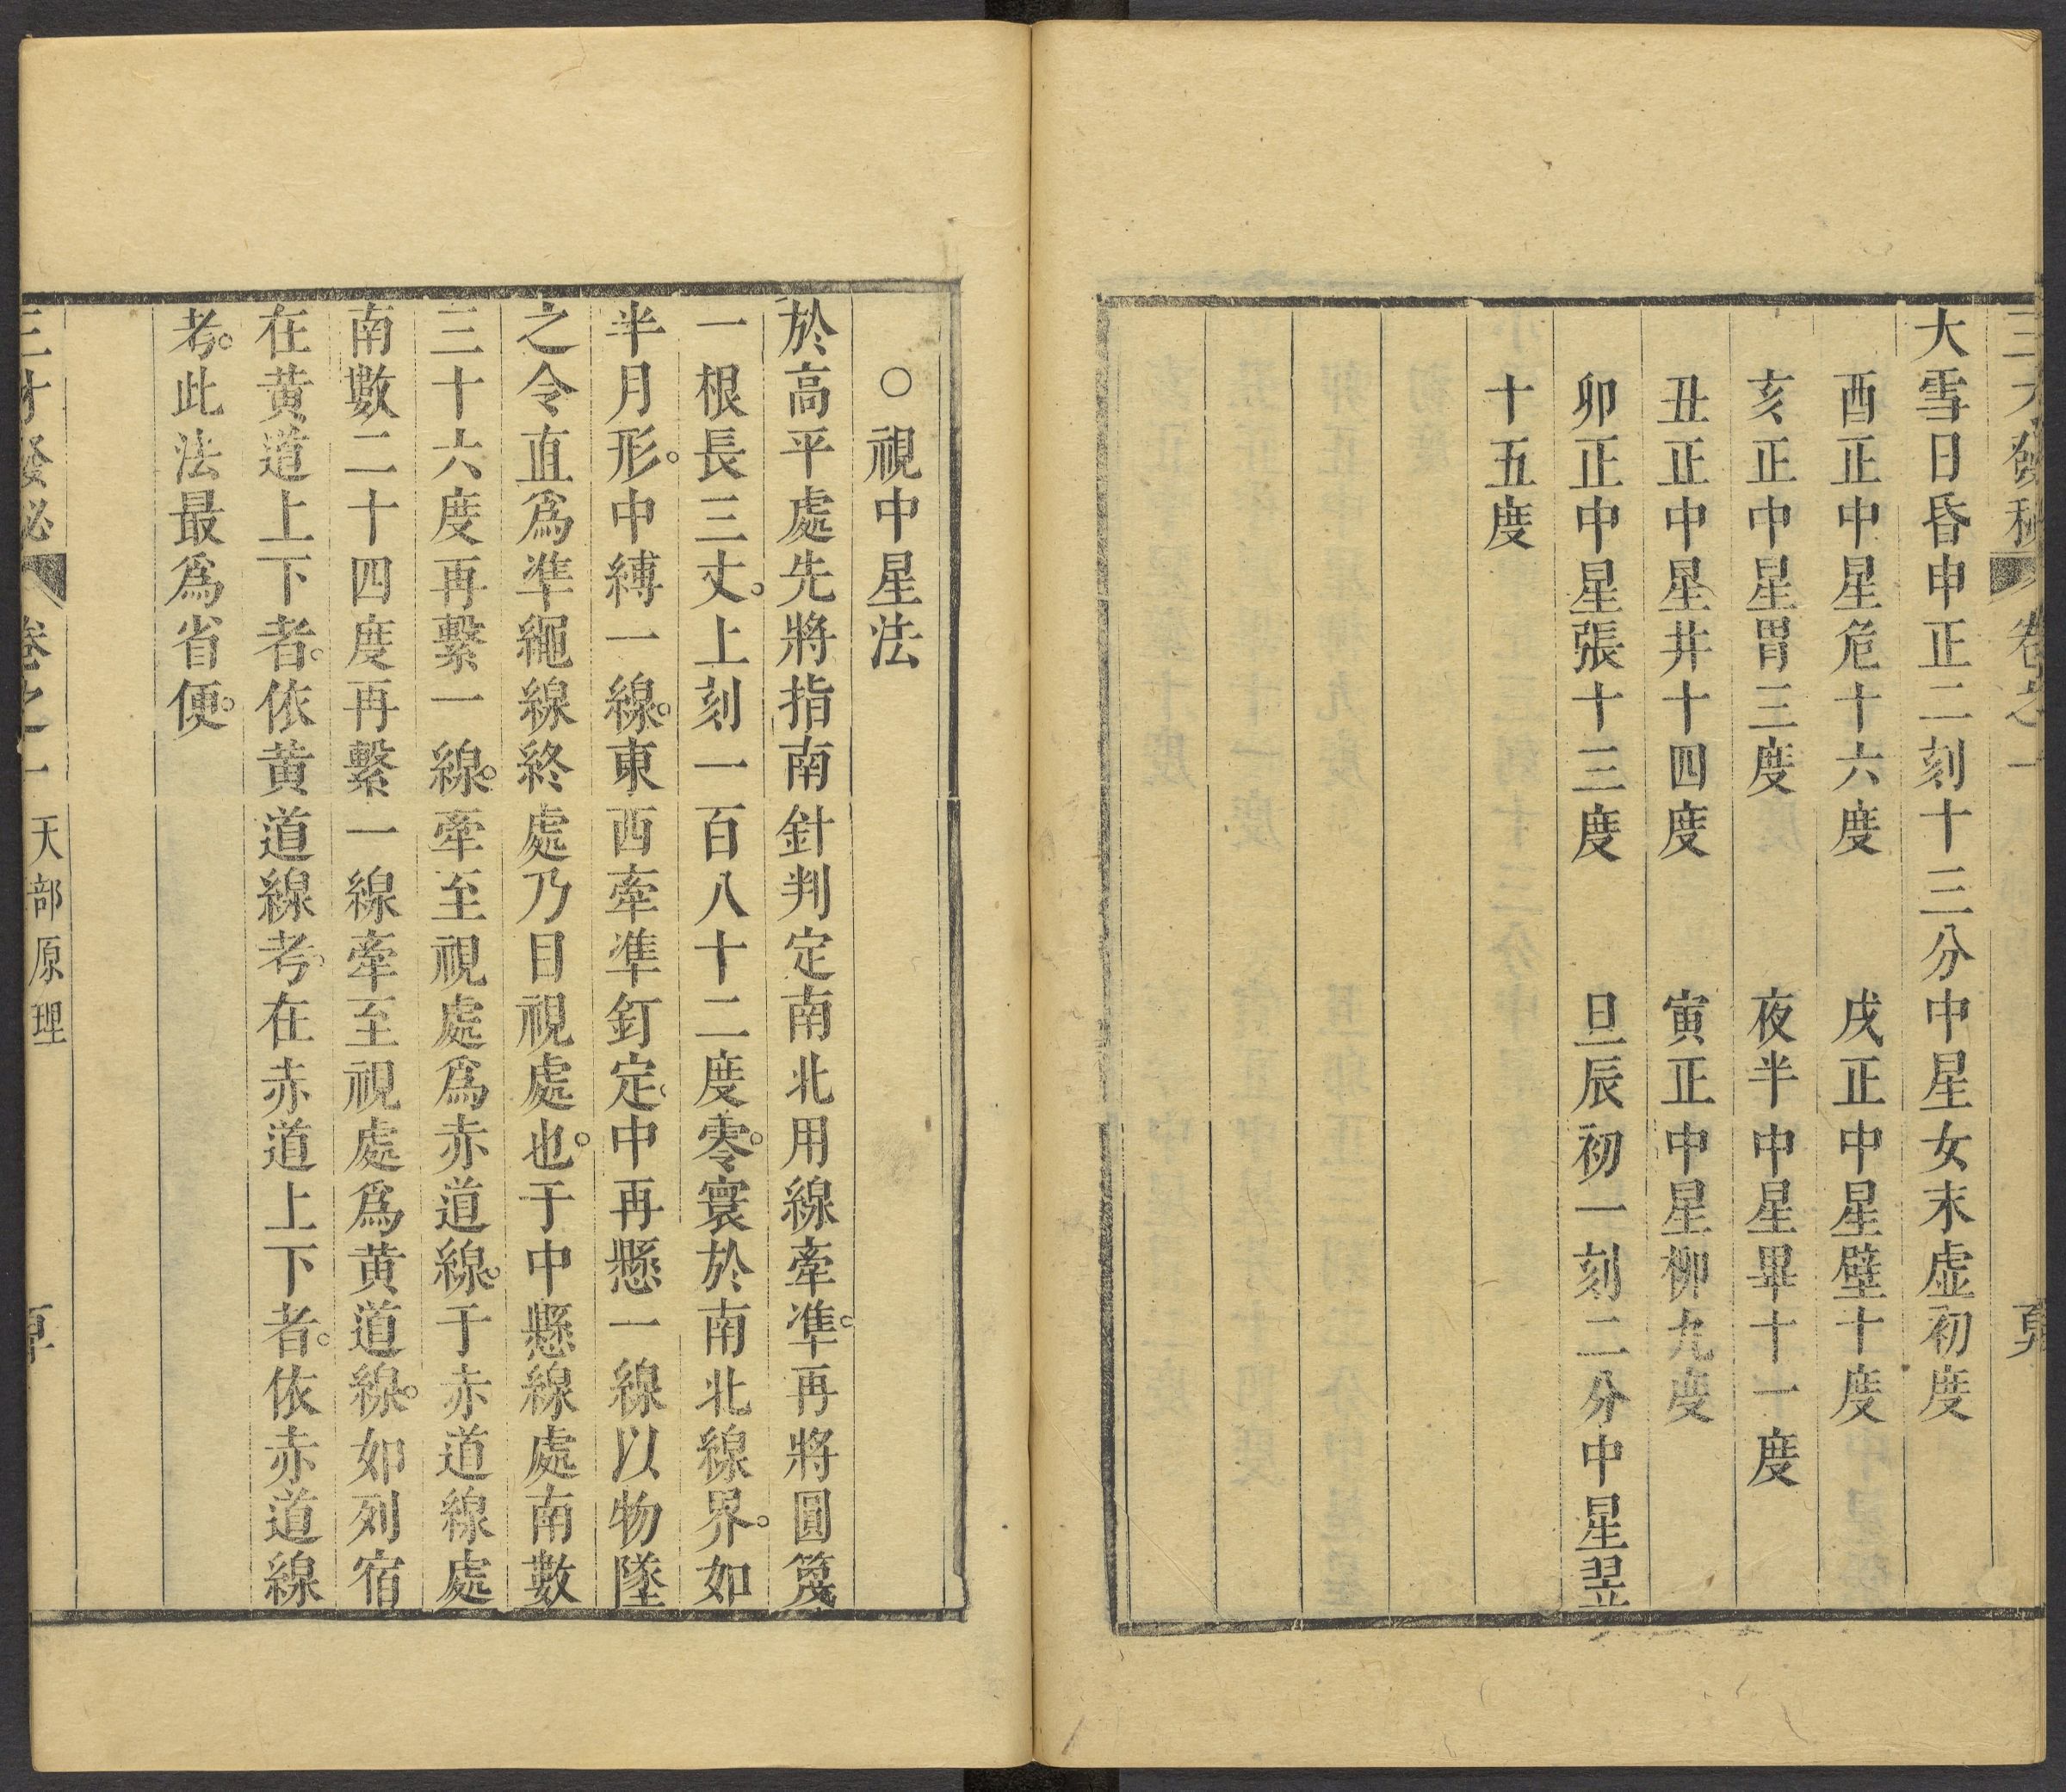 大雪日昏申正二刻十三分中星女末虚初度
酉正中星危十六度　戌正中星壁十度
亥正中星胃三度　夜半中星畢十一度
丑正中星井十四度　寅正中星柳九度
卯正中星張十三度　旦辰初一刻二分中星翌
十五度
○視中星法
於高平處先將指南針判定南北用線牽準。再將圓篾
一根長三丈。上刻一百八十二度零。寰於南北線界。如
半月形。中縛一線。東西牽準釘定。中再懸一線以物墜
之令直爲準繩線終處乃目視處也。于中懸線處南數
三十六度再繫一線。牽至視處爲赤道線。于赤道線處
南數二十四度再繫一線牽至視處爲黄道線。如列宿
在黄道上下者。依黄道線考。在赤道上下者。依赤道線
考。此法最爲省便。
三才發秘　卷之一　天部原理